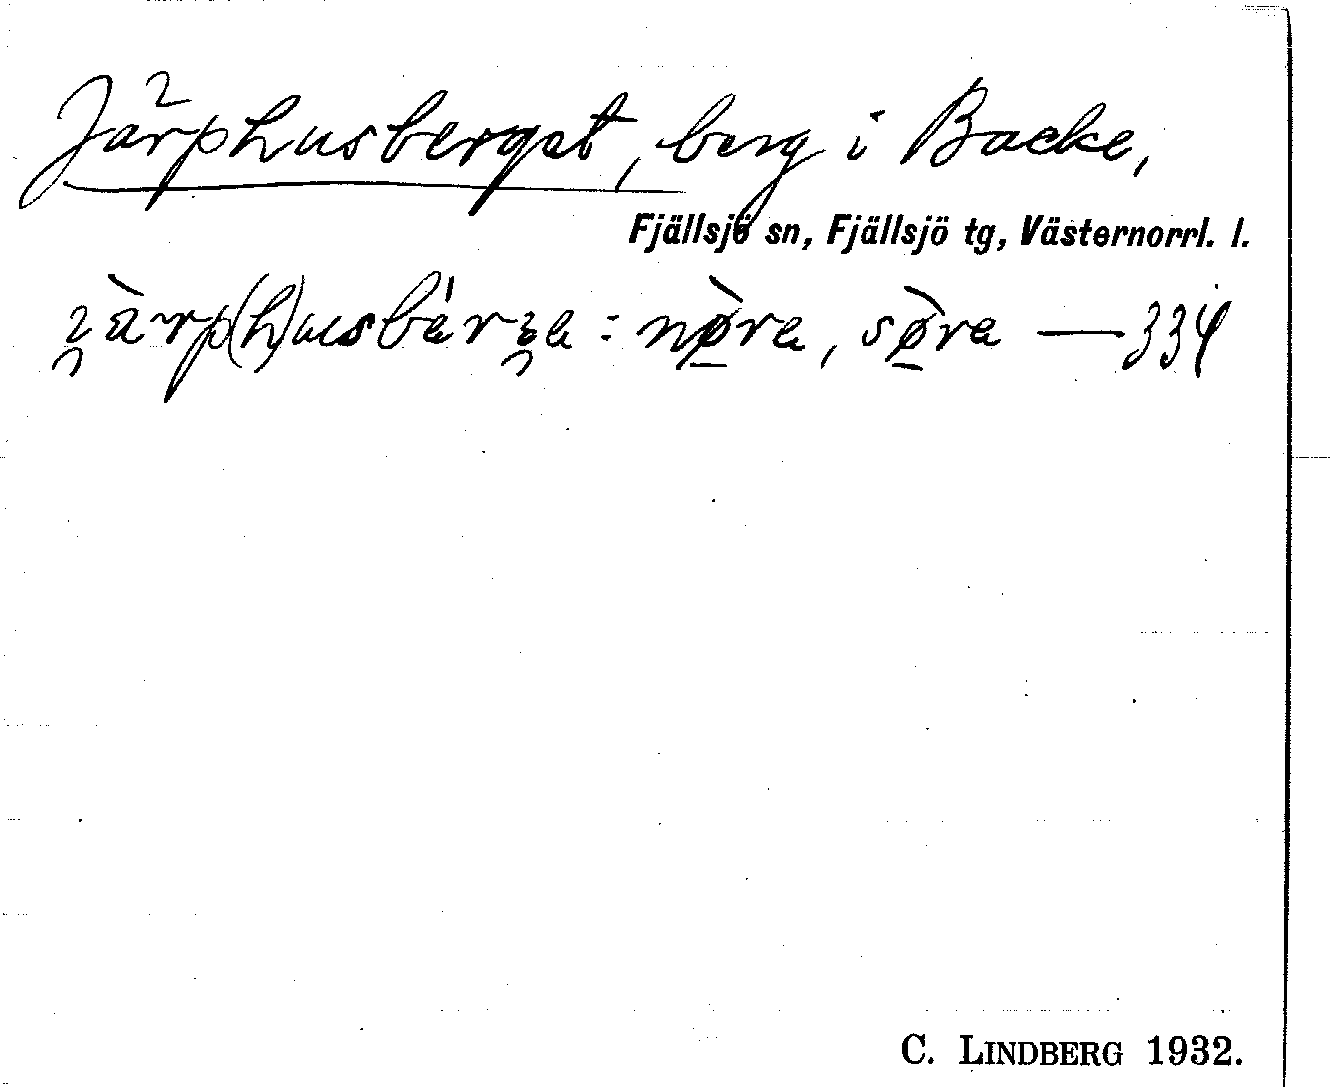 Järphusberget, berg i Backe,
Fjällsjö sn, Fjällsjö tg, Västernorrl. l.
: nø̀ra, sø̀ra — 334
C. LINDBERG 1932.